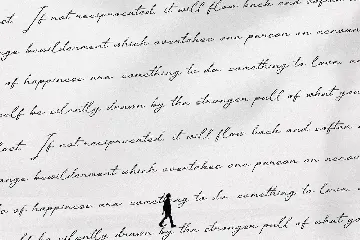 If not reciprocated, it will flow back and soften
ange bewilderment which overtakes one person on
of happiness are something to do, something to love, an
self be silently drawn by the stronger pull of what you
If not reciprocated, it will flow back and soften
ange bewilderment which overtakes one person on
of happiness are something to do, something to love, an
be silently drawn by the stronger pull of what